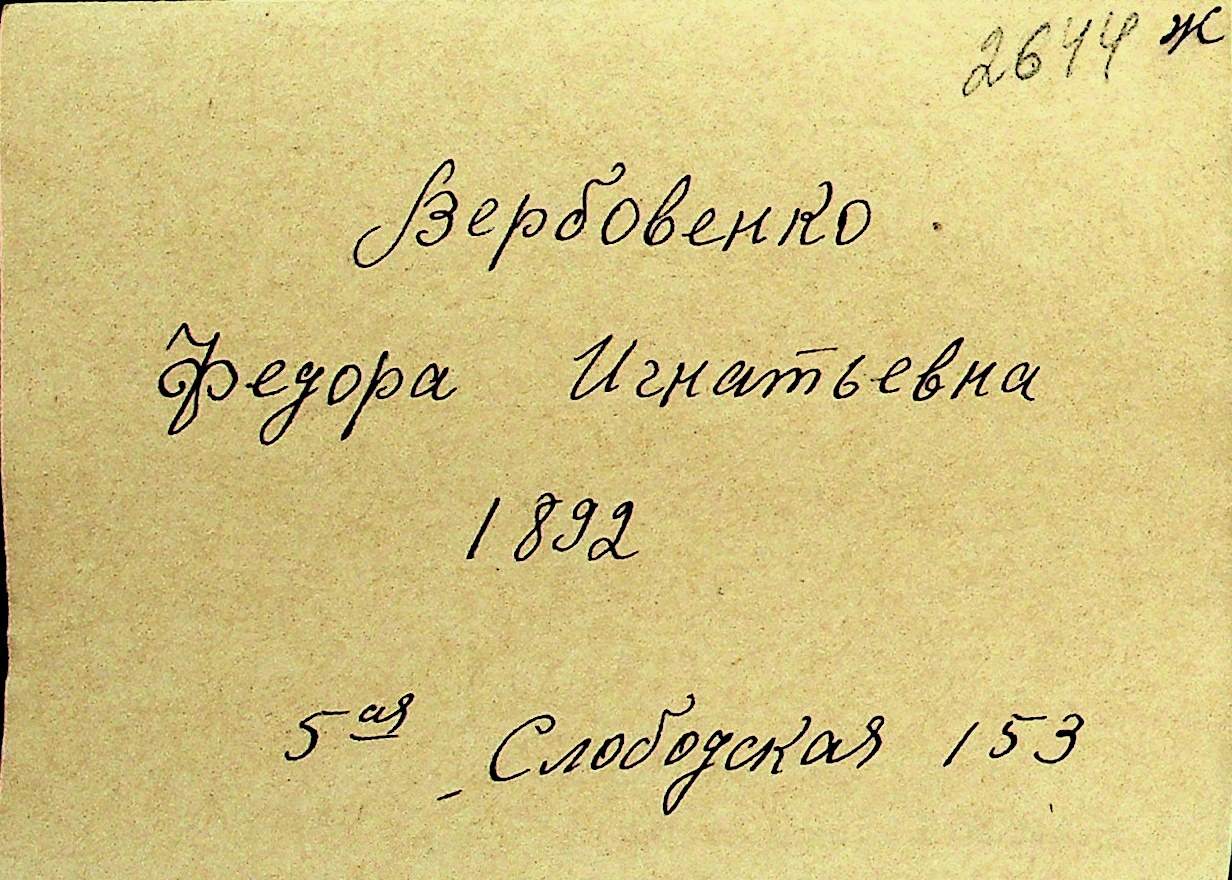 2644 ж
Вербовенко
Федора Игнатьевна
1892
5ая Слободская 153